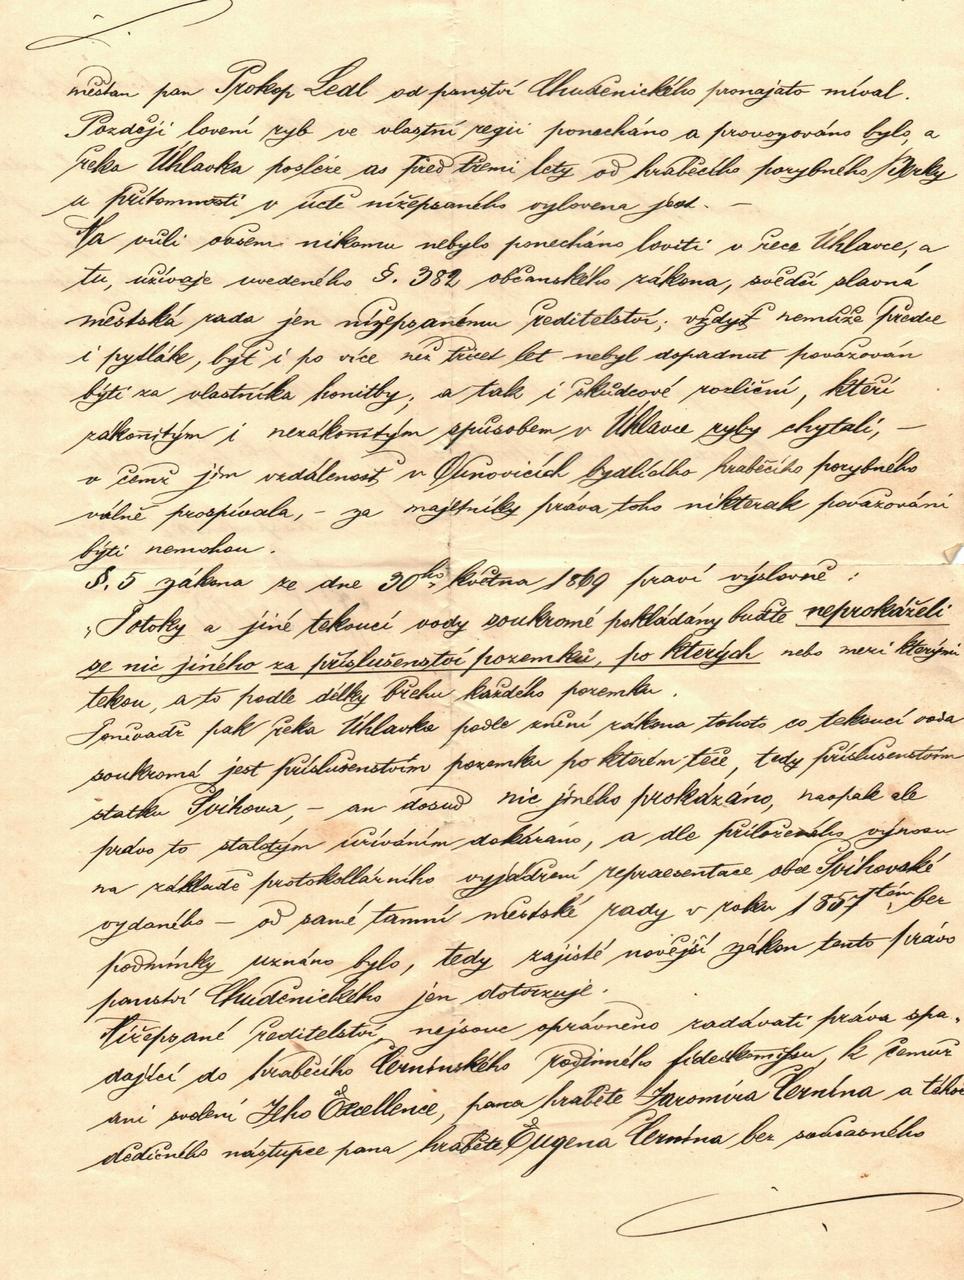 měšťan pan Prokop Ledl od panství Chudenického pronajato míval.
Později lovení ryb ve vlastní regii ponecháno a provozováno bylo, a
řeka Úhlavka posléze as před třemi lety od hraběcího porybného Berky
u přítomnosti v úctě nížepsaného vylovena jest. —
Na vůli ovšem nikomu nebylo ponecháno loviti v řece Úhlavce, a
tu, užívaje uvedeného §. 382 občanského zákona, svědčí slavná
městská rada jen nížepsanému ředitelství; vždyť nemůže předce
i pytlák, byť i po více než třicet let nebyl dopadnut považován
býti za vlastníka honitby; a tak i škůdcové rozliční, kteří
zákonitým i nezákonitým spůsobem v Úhlavce ryby chytali, —
v čemž jim vzdálenost v Ounovicích bydlícího hraběcího porybného
valně prospívala, — za majetníky práva toho nikterak považováni
býti nemohou.
§. 5 zákona ze dne 30ho května 1869 praví výslovně:
„Potoky a jiné tekoucí vody soukromé pokládány buďte neprokáželi
se nic jiného za příslušenství pozemků, po kterých nebo mezi kterými
tekou, a to podle délky břehu každého pozemku.
Poněvadž pak řeka Úhlavka podle znění zákona tohoto co tekoucí voda
soukromá jest příslušenstvím pozemku po kterém teče, tedy příslušenstvím
statku Švihova, — an dosud nic jiného prokázáno, naopak ale
právo to stalotým užíváním dokázáno, a dle přiloženého výnosu
na základě protokollárního vyjádření repraesentace obce Švihovské
vydaného — od samé tamní městské rady v roku 1857tém bez
podmínky uznáno bylo, tedy zajisté novější zákon tento právo
panství Chudenického jen dotvrzuje.
Nížepsané ředitelství nejsouc oprávněno zadávati práva spa-
dající do hraběcího Černínského rodinného fideikomissu, k čemuž
ani svolení Jeho Excellence, pana hraběte Jaromíra Černína a téhož
dědičného nástupce pana hraběte Eugena Černína bez současného